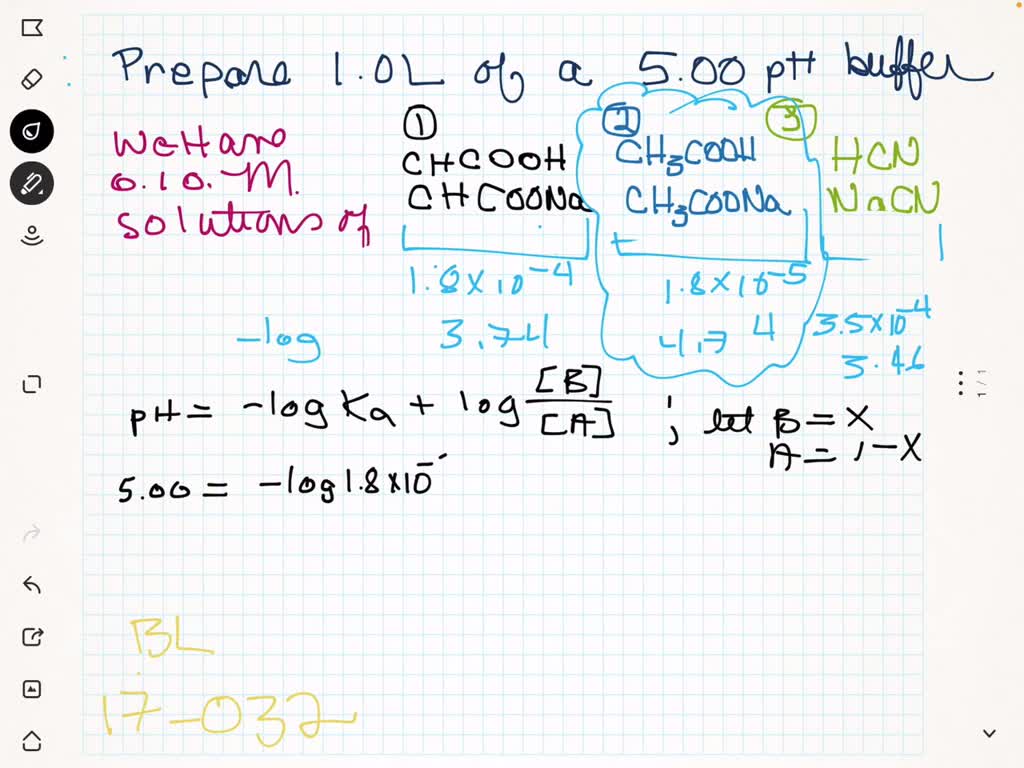 Prepare 1.0L of a 5.00 pH buffer
We Have
0.10. M.
solutions of
①
CHCOOH
CHCOONa
②
CH3COOH
CH3COONa
③
HCN
NaCN
1.8×10-4
1.8×10-5
3.5×10-4
-log
3.74
4.74
3.46
pH = -log Ka + log [B]/[A] ; let B = X
A = 1-X
5.00 = -log1.8×10-
BL
17-032
1/1